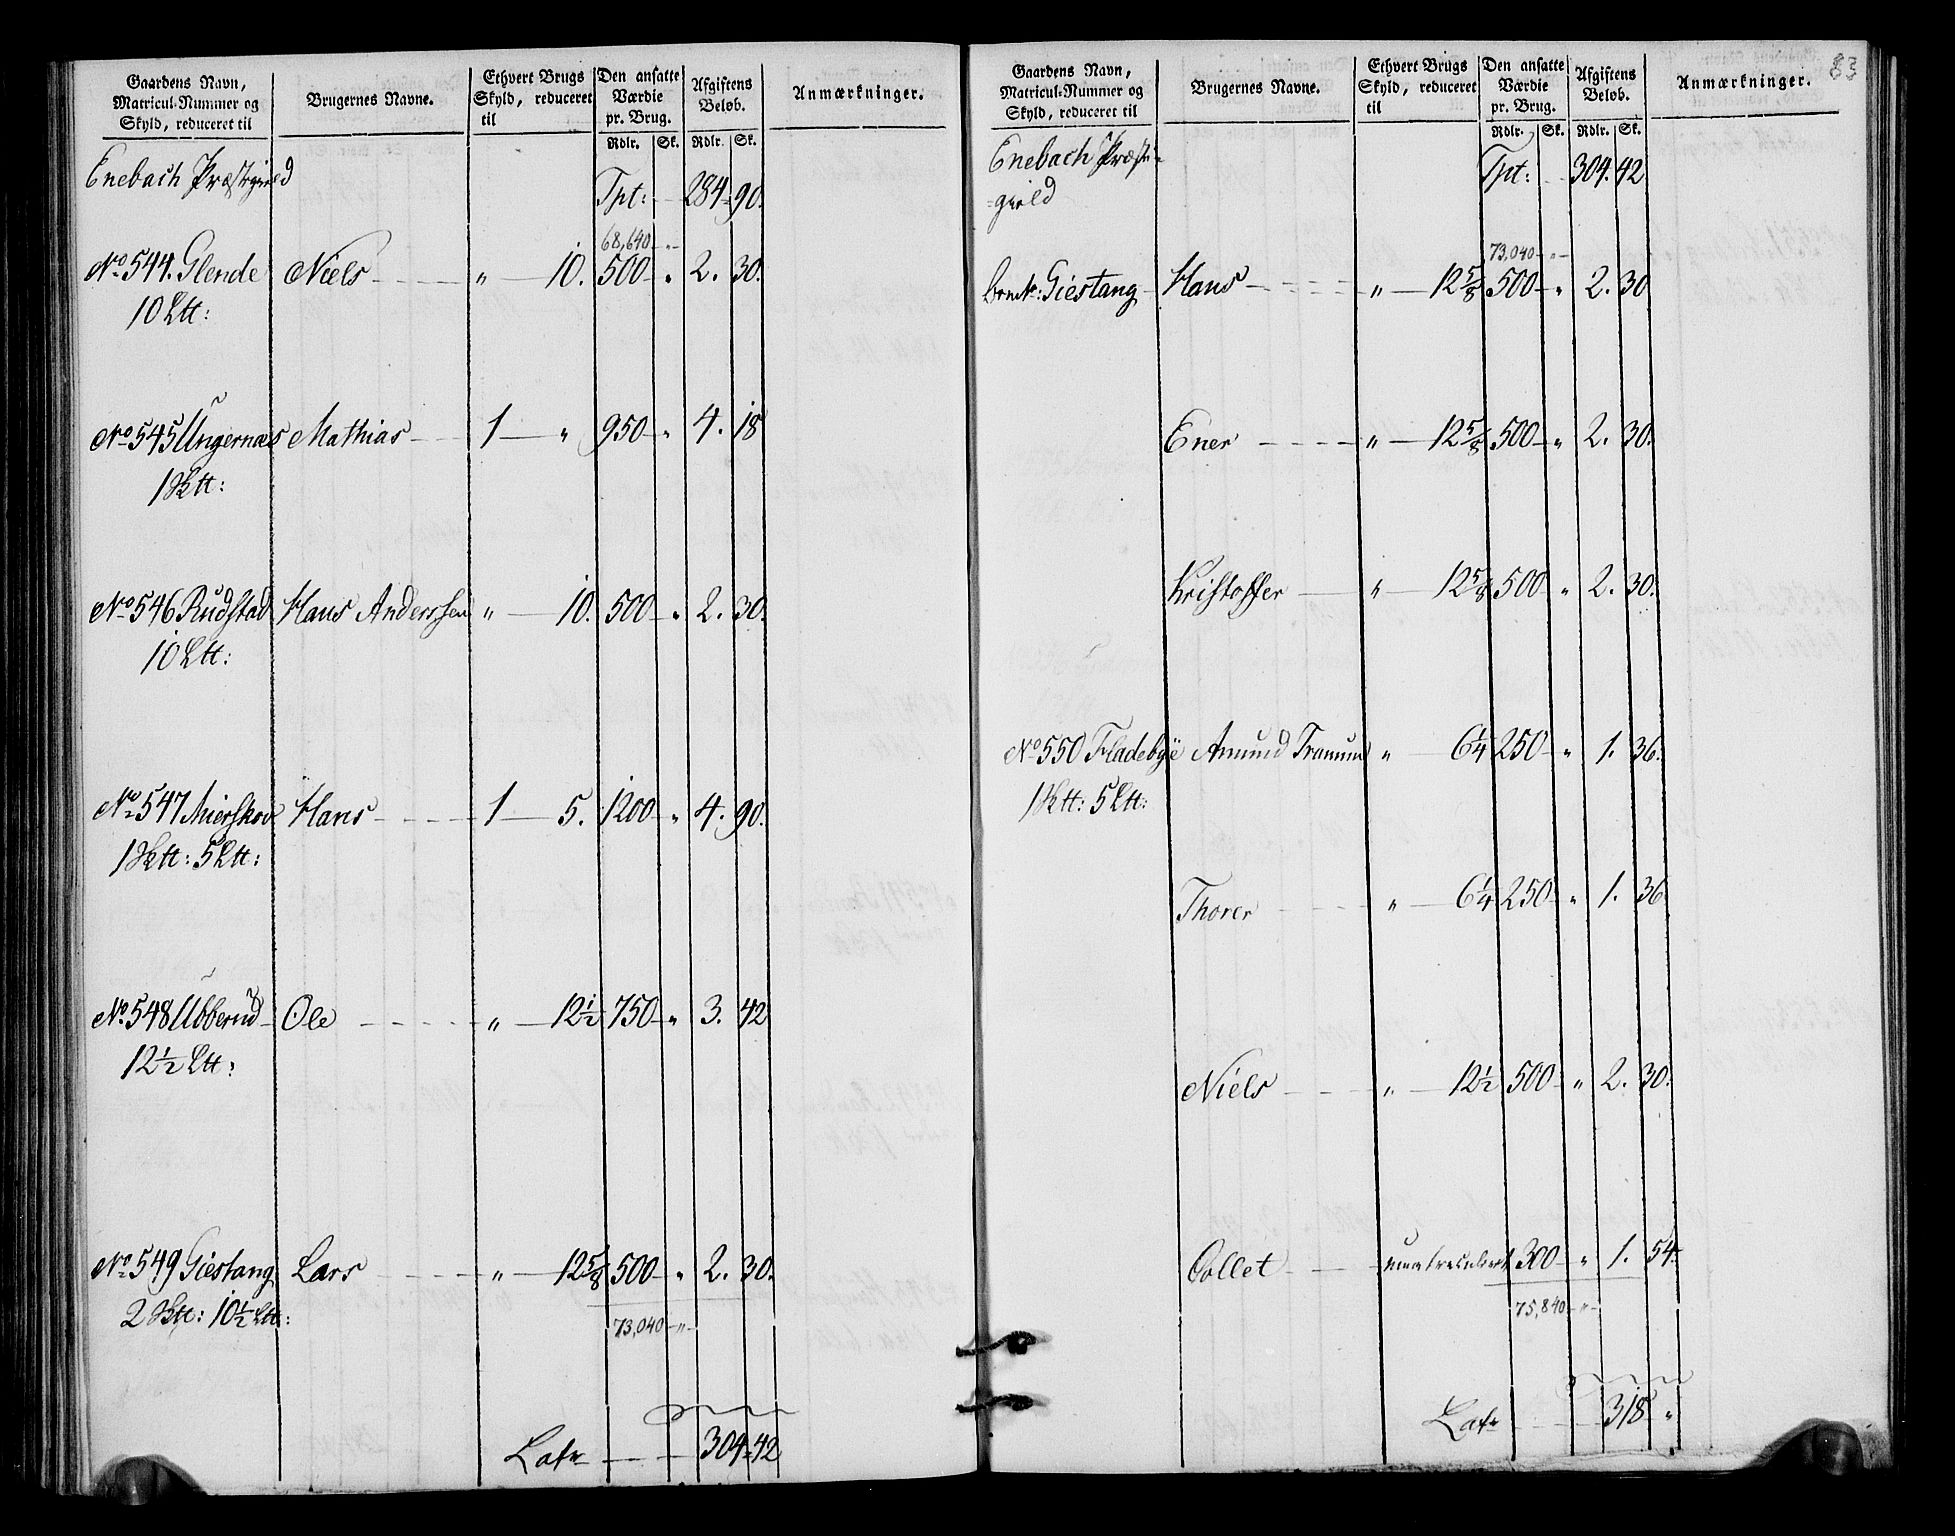 Gaardens Navn, Matricul-Nummer og Skyld, reduceret til
Brugernes Navne.
Ethvert Brugs Skyld, reduceret til
Den ansatte Værdie pr. Brug.
Afgiftens Beløb.
Anmærkninger.
Rdlr. Sk. Rdlr. Sk.
Enebach Præstegield
Tpt: 284 90.
68,640 "
No 544. Glende Niels " 10. 500 " 2. 30.
10 Ltt:
No 545 Ungernæs Mathias 1 " 950 " 4. 18
1 Sktt:
No 546 Rudstad Hans Anderssen " 10. 500 " 2. 30.
10 Ltt:
No 547 Mierskov Hans 1 5. 1200 " 4. 90.
1 Sktt: 5 Ltt:
No. 548 Ubberud Ole " 12 1/2 750 " 3. 42
12 1/2 Ltt:
No. 549 Giestang Lars " 12 5/8 500 " 2. 30.
2 Sktt: 10 1/2 Ltt:
73,040 "
Latr 304 42
83
Gaardens Navn, Matricul-Nummer og Skyld, reduceret til
Brugernes Navne.
Ethvert Brugs Skyld, reduceret til
Den ansatte Værdie pr. Brug.
Afgiftens Beløb.
Anmærkninger.
Rdlr. Sk. Rdlr. Sk.
Enebach Præste-
gield
Tpt: 304. 42
73,040 "
Giestang Hans " 12 5/8 500 " 2. 30
Ener " 12 5/8 500 " 2. 30.
Kristoffer " 12 5/8 500 " 2. 30.
No 550 Fladebye Amund Tranum " 6 1/4 250 " 1. 36.
1 Sktt: 5 Ltt:
Thorer " 6 1/4 250 " 1. 36
Niels " 12 1/2 500 " 2. 30.
Collet umatrculeret 300 " 1. 54
75,840 "
Latr 318 "